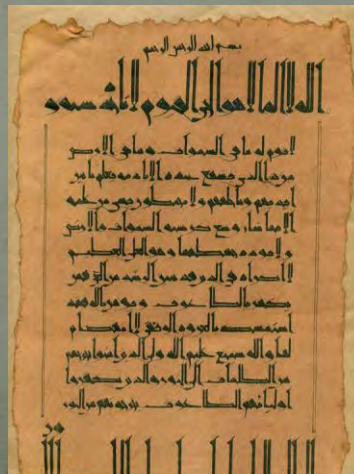 بسم الله الرحمن الرحيم
الله لا اله الا هو الحي القيوم لا تأخذه سنة و
لا نوم له ما في السموات وما في الارض
من ذا الذي يشفع عنده الا باذنه يعلم ما بين
ايديهم وما خلفهم ولا يحيطون بشي من علمه
الا بما شاء وسع كرسيه السموات والارض
ولا يوده حفظهما وهو العلي العظيم
لا اكراه في الدين قد تبين الرشد من الغي فمن
يكفر بالطاغوت ويومن بالله فقد
استمسك بالعروة الوثقى لا انفصام
لها والله سميع عليم الله ولي الذين امنوا يخرجهم
من الظلمات الى النور والذين كفروا
اولياؤهم الطاغوت يخرجونهم من النور